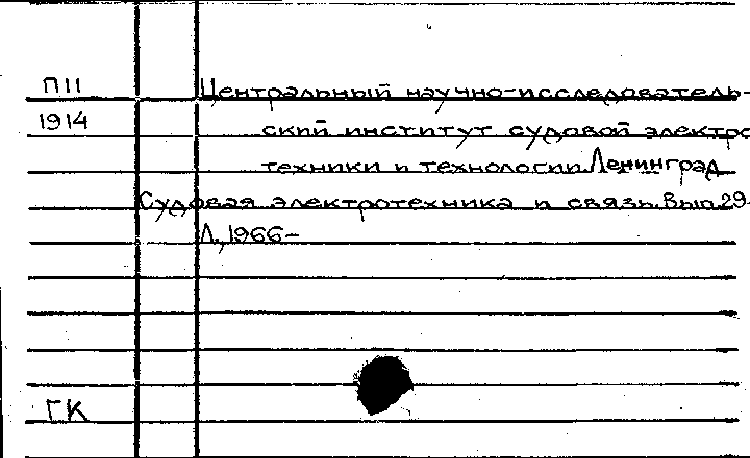 П11
1914
Центральный научно-исследователь-
ский институт судовой электро
техники и технологии. Ленинград
Судовая электротехника и связь. Вып. 29-
Л., 1966-
ГК